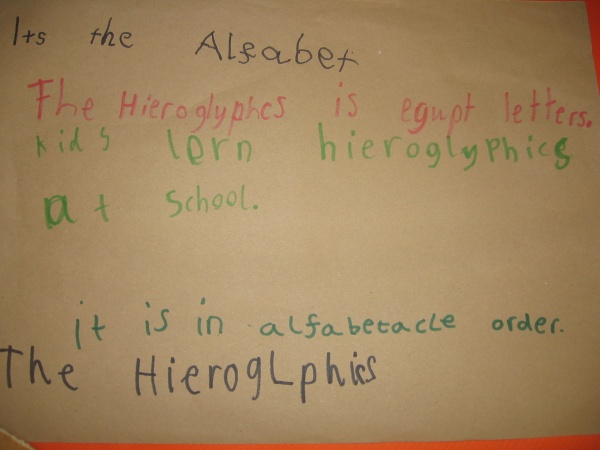 Its the Alfabet
The Hieroglyphcs is egupt letters.
kids lern hieroglyphics
at school.
it is in alfabetacle order.
The HierogLphics